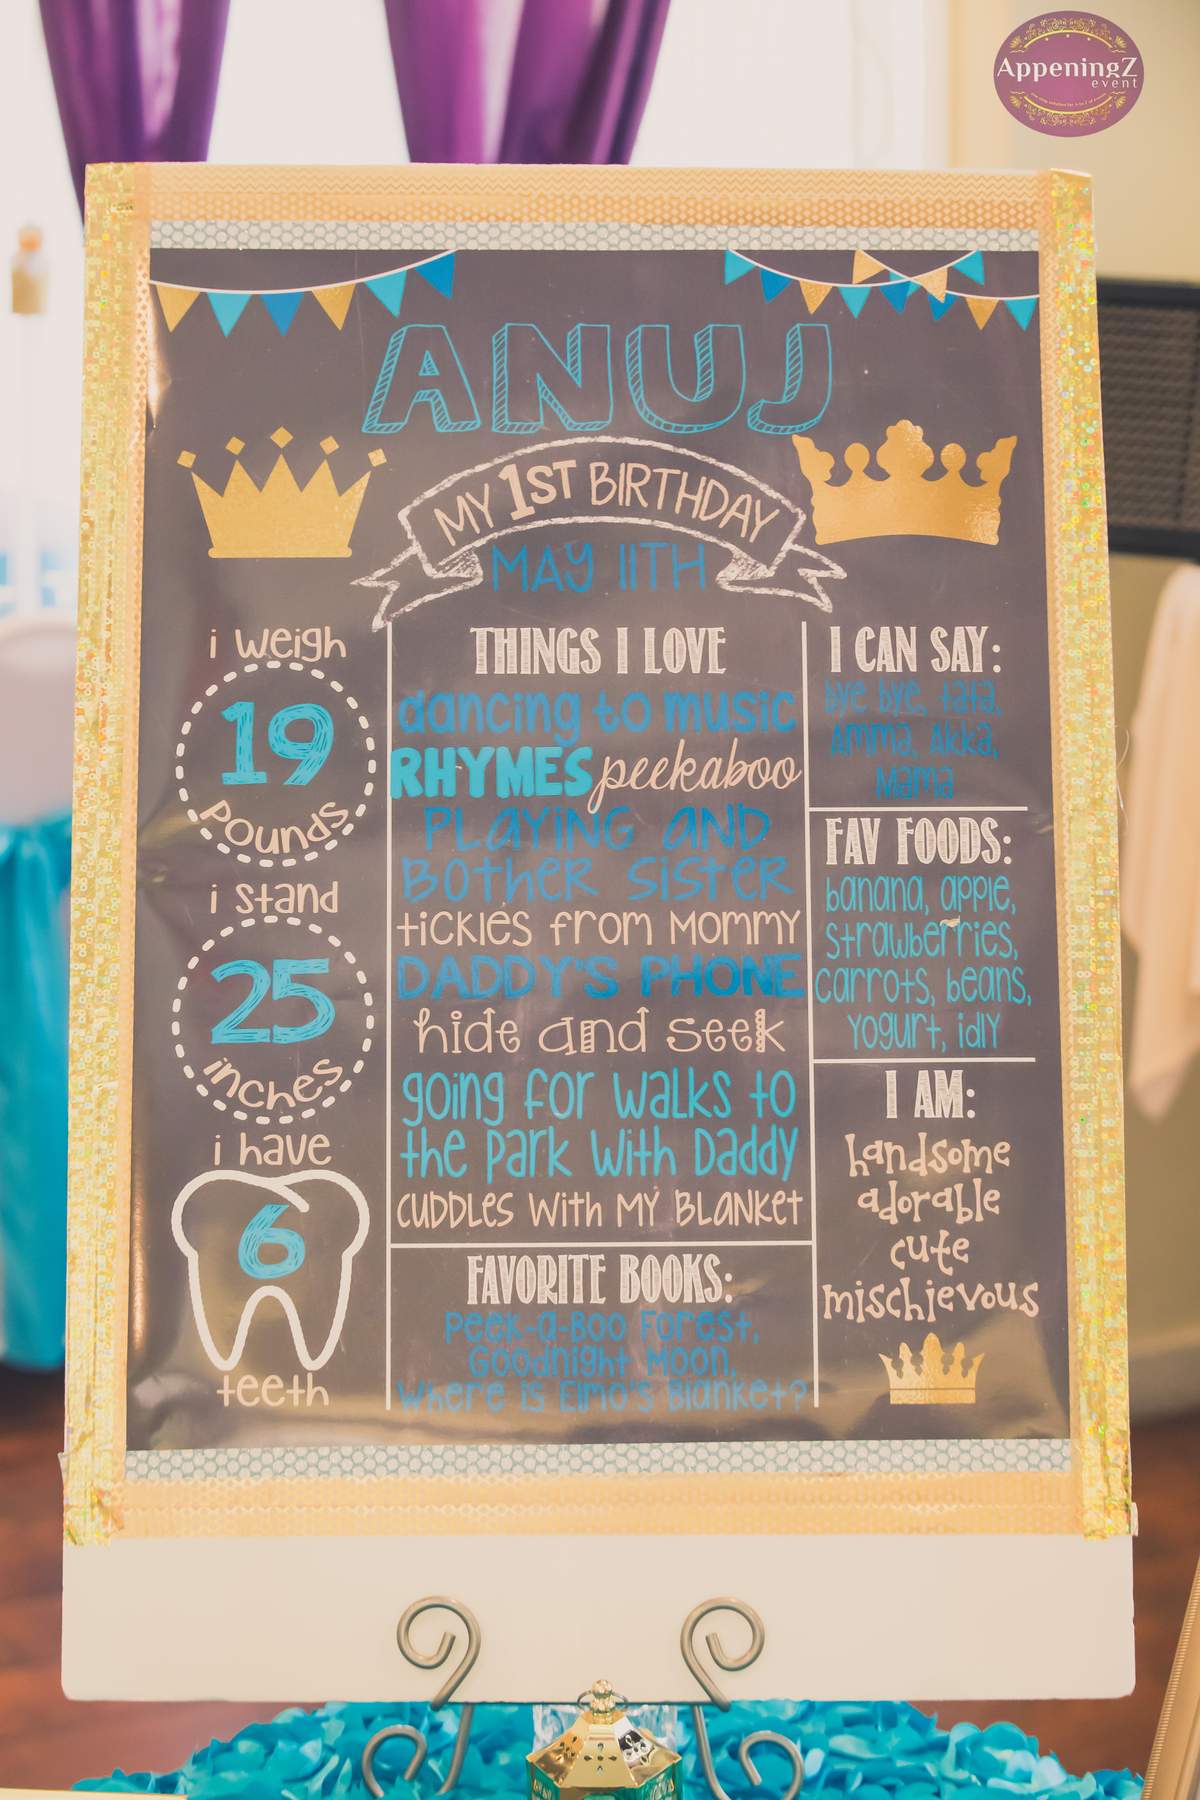 AppeningZ
event
ANUJ
MY 1ST BIRTHDAY
MAY 11TH
i weigh
19
Pounds
i stand
25
inches
i have
6
teeth
THINGS I LOVE
dancing to music
RHYMES peekaboo
PLAYING AND
BOTHER SISTER
tickles from Mommy
DADDY'S PHONE
hide and seek
going for walks to
the park with Daddy
CUDDLES With MY BLANKET
FAVORITE BOOKS:
Peek-a-Boo Forest,
Goodnight Moon,
Where is Elmo's Blanket?
I CAN SAY:
bye bye, tata,
Amma, Akka,
Mama
FAV FOODS:
banana, apple,
strawberries,
carrots, beans,
yogurt, idly
I AM:
handsome
adorable
cute
mischievous